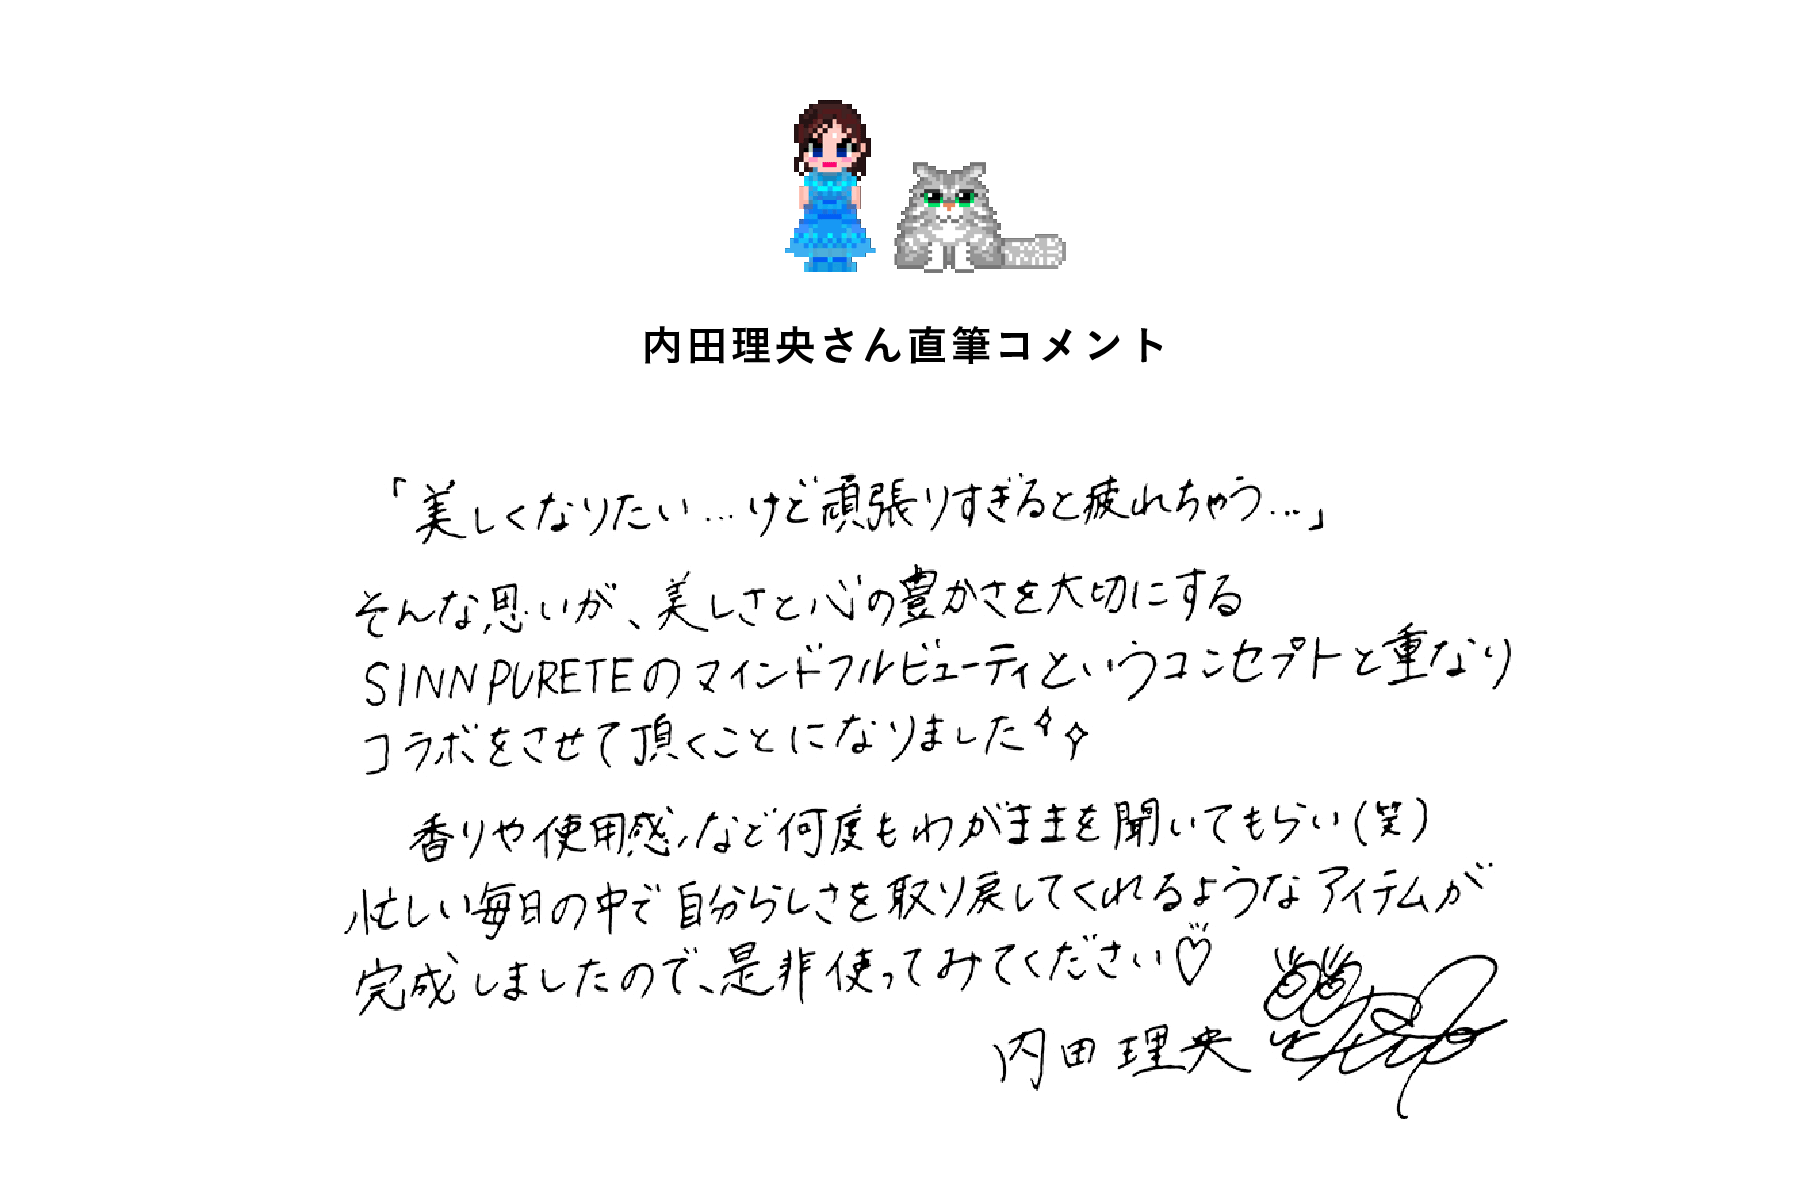 内田理央さん直筆コメント
「美しくなりたい…けど頑張りすぎると疲れちゃう…」
そんな思いが、美しさと心の豊かさを大切にする
SINN PURETEのマインドフルビューティというコンセプトと重なり
コラボをさせて頂くことになりました
香りや使用感など何度もわがままを聞いてもらい(笑)
忙しい毎日の中で自分らしさを取り戻してくれるようなアイテムが
完成しましたので、是非使ってみてください♡
内田理央